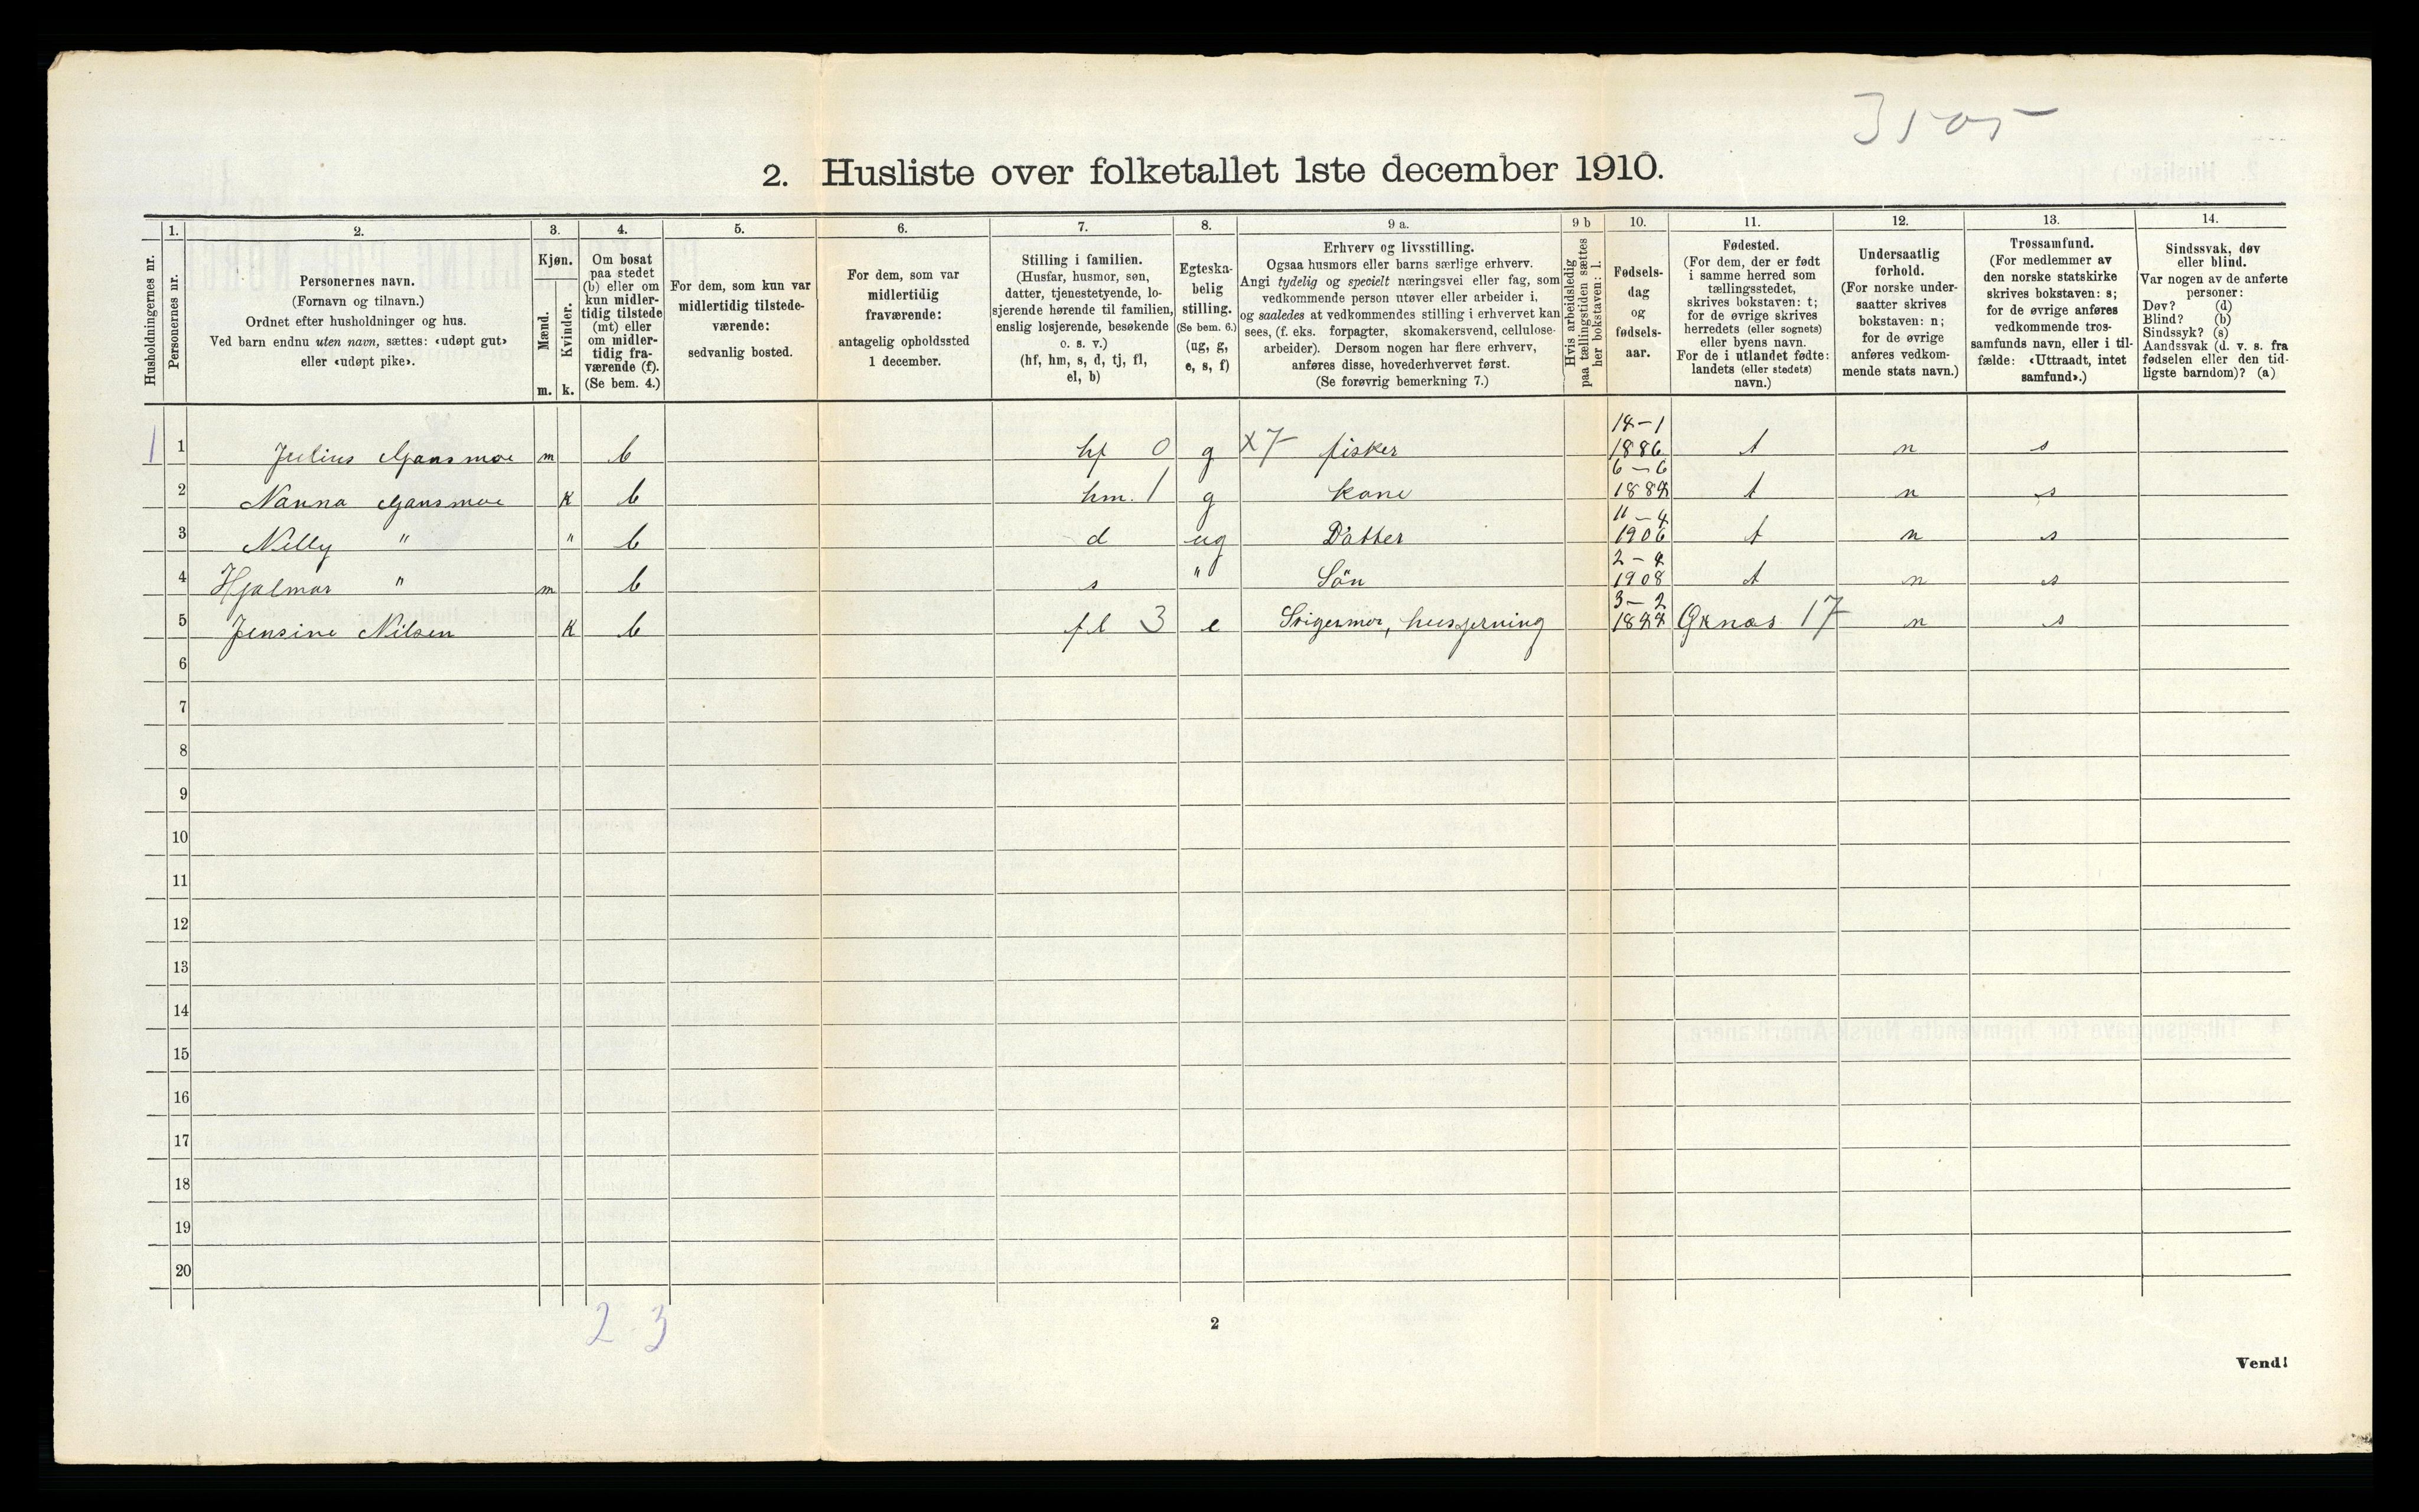 3505
2. Husliste over folketallet 1ste december 1910.
Husholdningernes nr.
1. Personernes nr.
2. Personernes navn.
(Fornavn og tilnavn.)
Ordnet efter husholdninger og hus.
Ved barn endnu uten navn, sættes: «udøpt gut»
eller «udøpt pike».
3. Kjøn.
Mænd. m.
Kvinder. k.
4. Om bosat
paa stedet
(b) eller om
kun midler-
tidig tilstede
(mt) eller
om midler-
tidig fra-
værende (f).
(Se bem. 4.)
5. For dem, som kun var
midlertidig tilstede-
værende:
sedvanlig bosted.
6. For dem, som var
midlertidig
fraværende:
antagelig opholdssted
1 december.
7. Stilling i familien.
(Husfar, husmor, søn,
datter, tjenestetyende, lo-
sjerende hørende til familien,
enslig losjerende, besøkende
o. s. v.)
(hf, hm, s, d, tj, fl,
el, b)
8. Egteska-
belig
stilling.
(Se bem. 6.)
(ug, g,
e, s, f)
9 a. Erhverv og livsstilling.
Ogsaa husmors eller barns særlige erhverv.
Angi tydelig og specielt næringsvei eller fag, som
vedkommende person utøver eller arbeider i,
og saaledes at vedkommendes stilling i erhvervet kan
sees, (f. eks. forpagter, skomakersvend, cellulose-
arbeider). Dersom nogen har flere erhverv,
anføres disse, hovederhvervet først.
(Se forøvrig bemerkning 7.)
9 b Hvis arbeidsledig
paa tællingstiden sættes
her bokstaven: l.
10. Fødsels-
dag
og
fødsels-
aar.
11. Fødested.
(For dem, der er født
i samme herred som
tællingsstedet,
skrives bokstaven: t;
for de øvrige skrives
herredets (eller sognets)
eller byens navn.
For de i utlandet fødte:
landets (eller stedets)
navn.)
12. Undersaatlig
forhold.
(For norske under-
saatter skrives
bokstaven: n;
for de øvrige
anføres vedkom-
mende stats navn.)
13. Trossamfund.
(For medlemmer av
den norske statskirke
skrives bokstaven: s;
for de øvrige anføres
vedkommende tros-
samfunds navn, eller i til-
fælde: «Uttraadt, intet
samfund».)
14. Sindssvak, døv
eller blind.
Var nogen av de anførte
personer:
Døv? (d)
Blind? (b)
Sindssyk? (s)
Aandssvak (d. v. s. fra
fødselen eller den tid-
ligste barndom)? (a)
1 1 Julius m b hf 0 g x7 fisker 18-1 1886 t n s
2 Nanna k b hm. 1 g kone 6-6 t n s
3 Nelly " " b d ug Datter 11-4 1906 t n s
4 Hjalmar " m b s " Sön 1908 t n s
5 Jensine Nilsen K b fl 3 e Svigermor, husgjerning 3-2 17 n s
6
7
8
9
10
11
12
13
14
15
16
17
18
19
20
2 3
2
Vend!